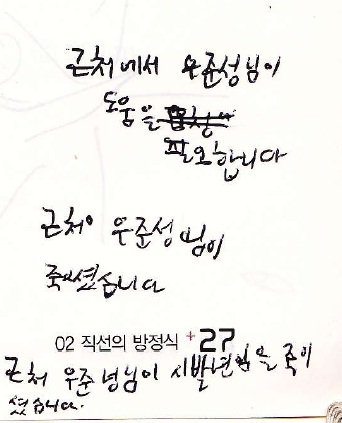 근처에서 우준성님이
도움을
필요합니다
근처 우준성님이
죽으셨습니다
02 직선의 방정식 +27
근처 우준성님이 시발년님을 죽이
셨습니다.